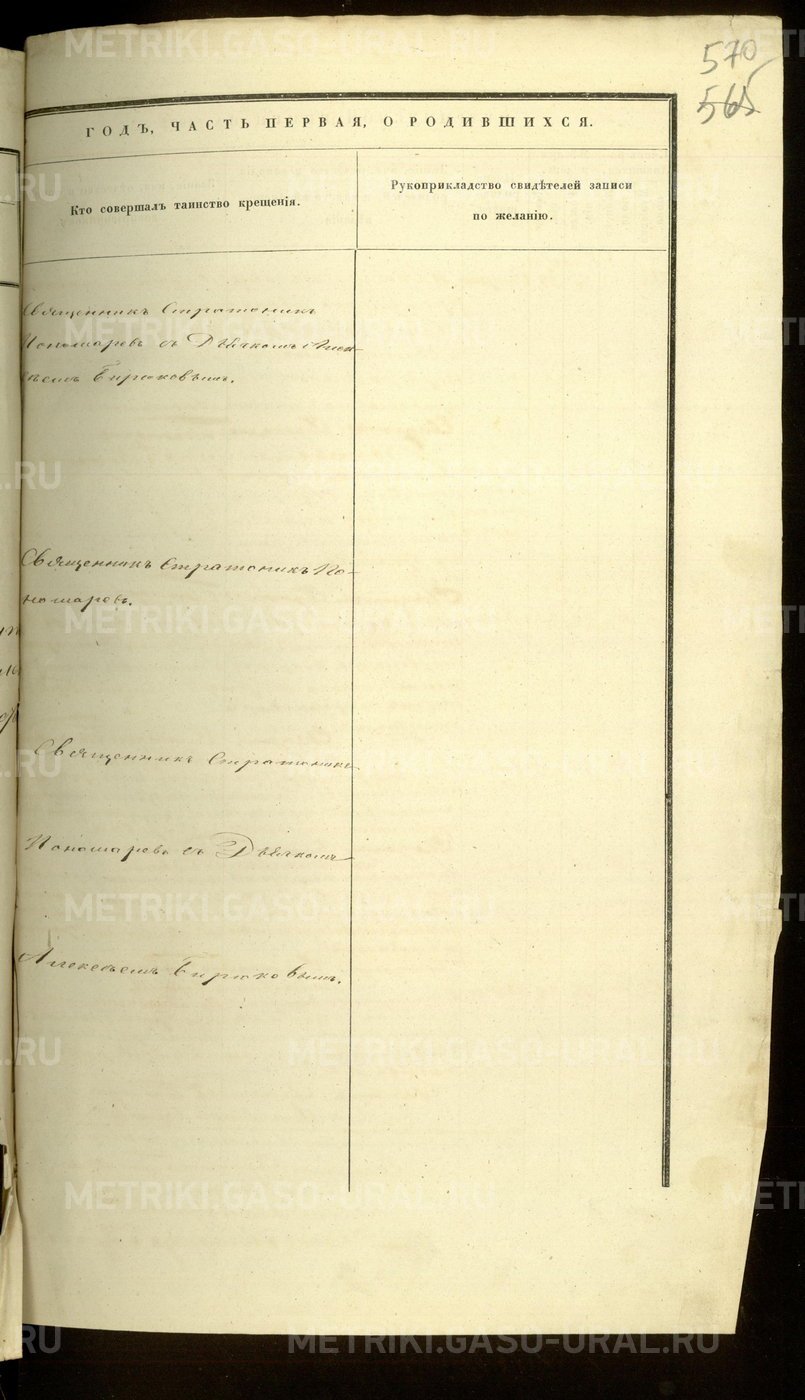 570
565
ГОДЪ, ЧАСТЬ ПЕРВАЯ, О РОДИВШИХСЯ.
Кто совершалъ таинство крещенія.
Рукоприкладство свидѣтелей записи
по желанію.
Священникъ Стратоникъ
Пономаревъ съ Дьячкомъ Алек-
сѣемъ Бирюковымъ.
Священникъ Стратоникъ По-
номаревъ.
Священникъ Стратоникъ
Пономаревъ съ Дьячкомъ
Алексѣемъ Бирюковымъ.
METRIKI.GASO-URAL.RU